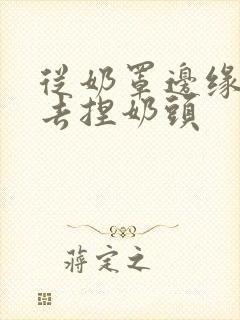 從奶罩邊緣
去捏奶頭
蔣定之